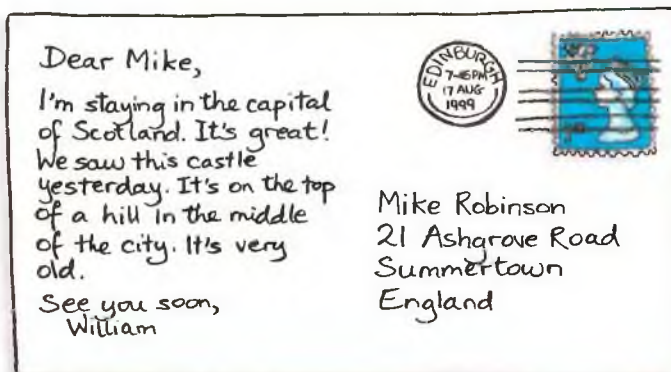 Dear Mike,
I'm staying in the capital
of Scotland. It's great!
We saw this castle
yesterday. It's on the top
of a hill in the middle
of the city. It's very
old.
See you soon,
William
EDINBURGH
7-45PM
17 AUG
1999
Mike Robinson
21 Ashgrove Road
Summertown
England